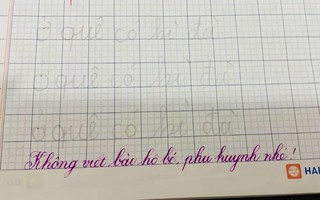 ở quê có hì đà
ở quê có hì đà
ở quê có hì đà
Không viết bài hộ bé, phụ huynh nhé!
HẢI